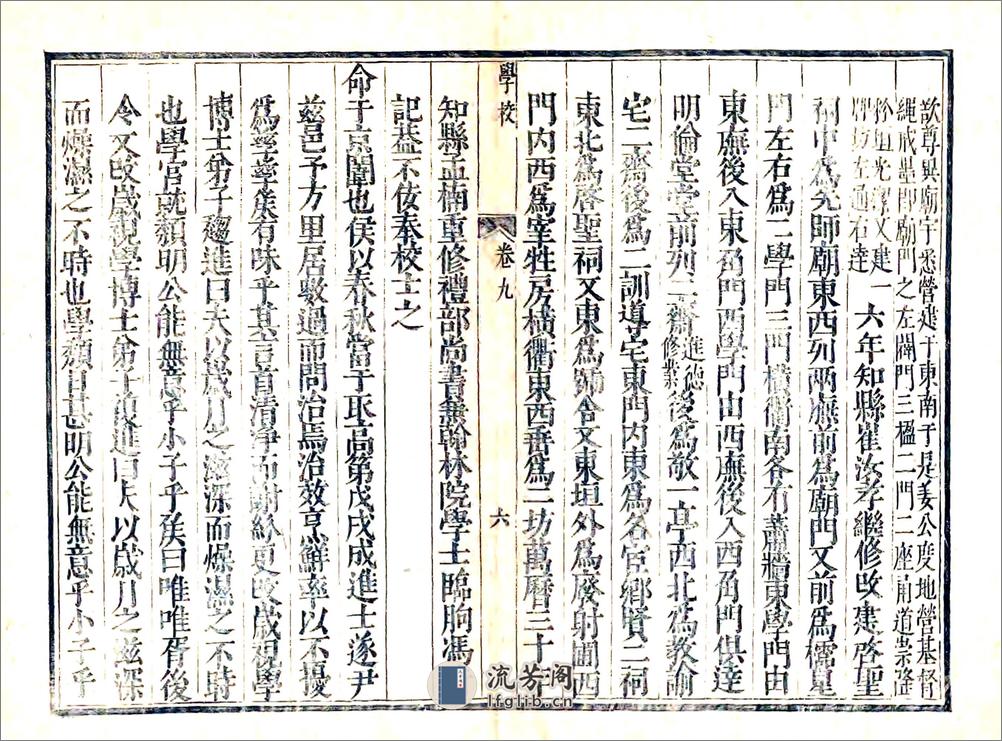 歆尊異廟宇悉營建于東南于是姜公度地營基督
繩戒㗊即廟門之左闢門三楹二門二座甬道崇隆
衿垣光潔又建一
牌坊左通右達
六年知縣崔汝孝繼修改建啓聖
祠中爲先師廟東西列兩廡前爲廟門又前爲櫺星
門左右爲二學門三門橫衢南各有蕭牆東學門由
東廡後入東角門西學門由西廡後入西角門俱達
明倫堂堂前列二齋進德
修業後爲敬一亭西北爲教諭
宅二齋後爲二訓導宅東門內東爲名宦鄉賢二祠
東北爲啓聖祠又東爲號舍又東垣外爲廢射圃西
門內西爲宰牲房橫衢東西番爲二坊萬曆三十一年
學校
卷九
六
知縣孟楠重修禮部尚書兼翰林院學士臨朐馮
記葢不佞奉校士之
命于京闈也侯以春秋當于耳高第戊戌成進士遂尹
兹邑予方里居數過而問治焉治效烹鮮率以不擾
爲孳孳雋有味乎其言首清淨而謝絲更改歲視學
博士弟子趨進曰夫以歲月之滋深而燥濕之不時
也學官就頹明公能無意乎小子乎侯曰唯唯胥後
令又改歲視學博士弟子前進曰夫以歲月之滋深
而燥濕之不時也學頹日甚明公能無意乎小子乎
流芳阁
lfglib.cn